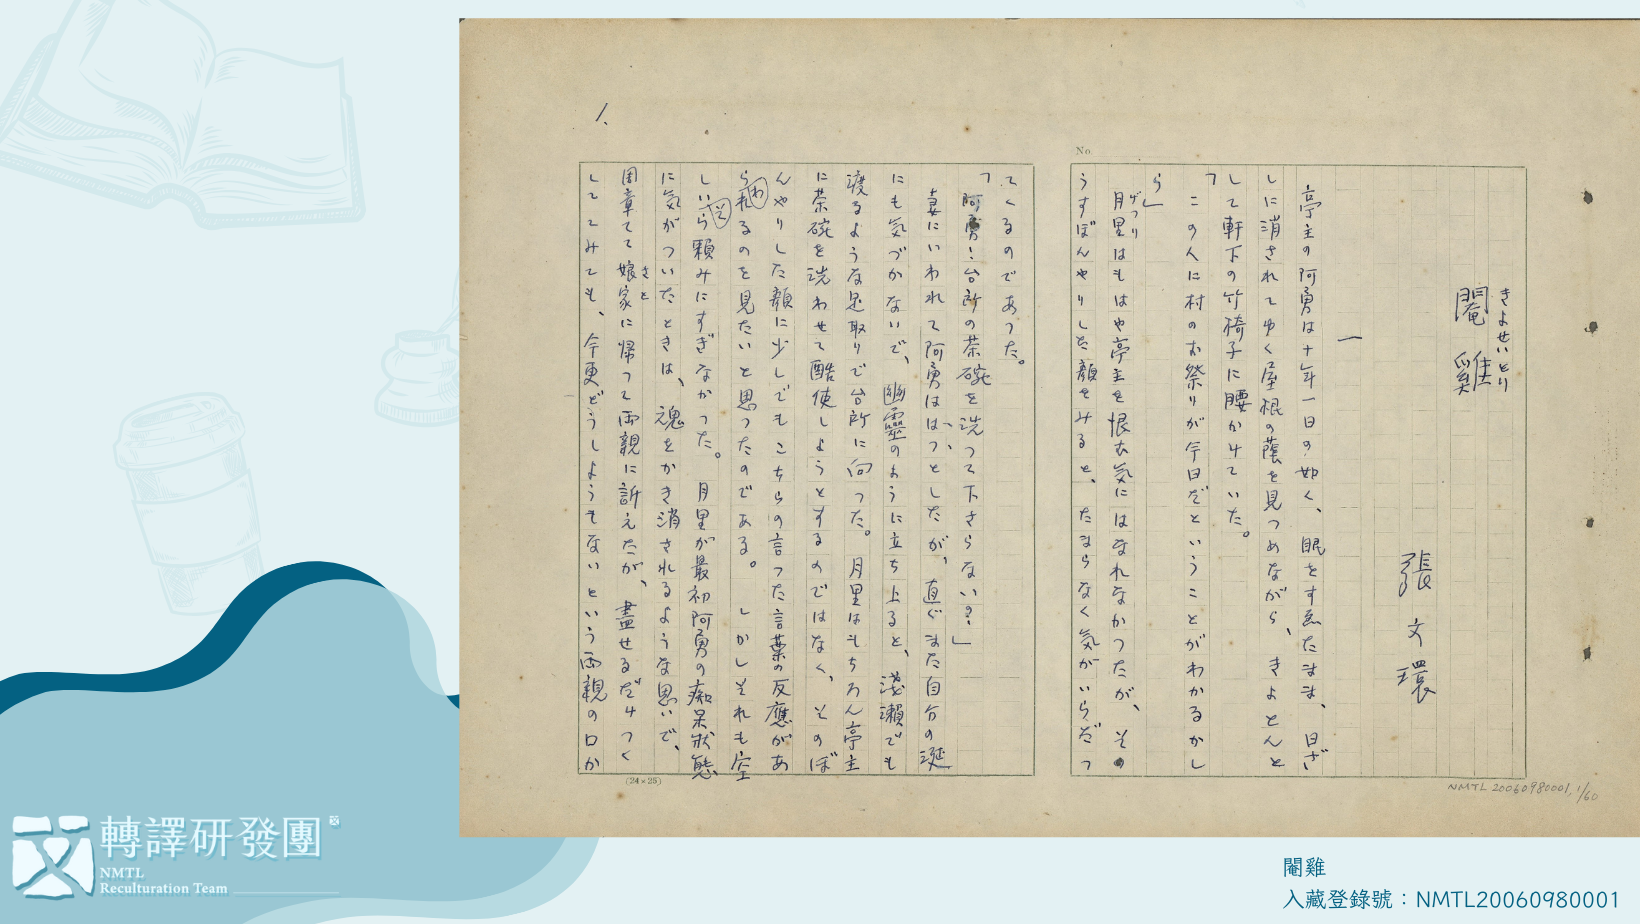 No.
きよせいとり
閹雞
張文環
一
亭主の阿勇は十年一日の如く、眠をすゑたまま、日ざ
しに消されてゆく屋根の蔭を見つめながら、きよとんと
して軒下の竹椅子に腰かけていた。
「この人に村のお祭りが今日だということがわかるかし
ら」
げつり
月里はもはや亭主を恨む気にはなれなかつたが、その
うすぼんやりした顔をみると、たまらなく気がいらだつ
てくるのであつた。
「阿勇！台所の茶碗を洗つて下さらない？」
妻にいわれて阿勇ははつとしたが、直ぐまた自分の涎
にも気づかないで、幽靈のように立ち上ると、淺瀨でも
渡るような足取りで台所に向つた。月里はもちろん亭主
に茶碗を洗わせて酷使しようとするのではなく、そのぼ
んやりした顔に少しでもこちらの言つた言葉の反應があ
らわれるのを見たいと思つたのである。しかしそれも空
しいそら頼みにすぎなかつた。月里が最初阿勇の痴呆狀態
に気がついたときは、魂をかき消されるような思いで、
さと
周章てて娘家に帰つて両親に訴えたが、盡せるだけつく
してみても、今更どうしようもないという両親の口か
1.
(24×25)
NMTL 20060980001, 1/60
轉譯研發團
NMTL
Reculturation Team
閹雞
入藏登錄號：NMTL20060980001